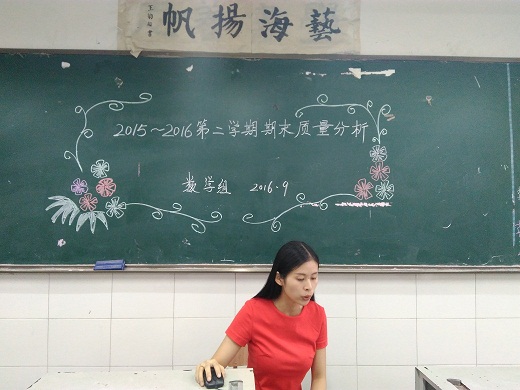 帆揚海藝
2015～2016第二学期期末质量分析
数学组 2016.9